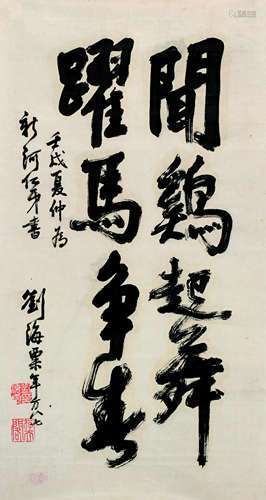 聞鷄起舞
躍馬争春
壬戌夏仲为
新河仁弟書
劉海粟年方八七